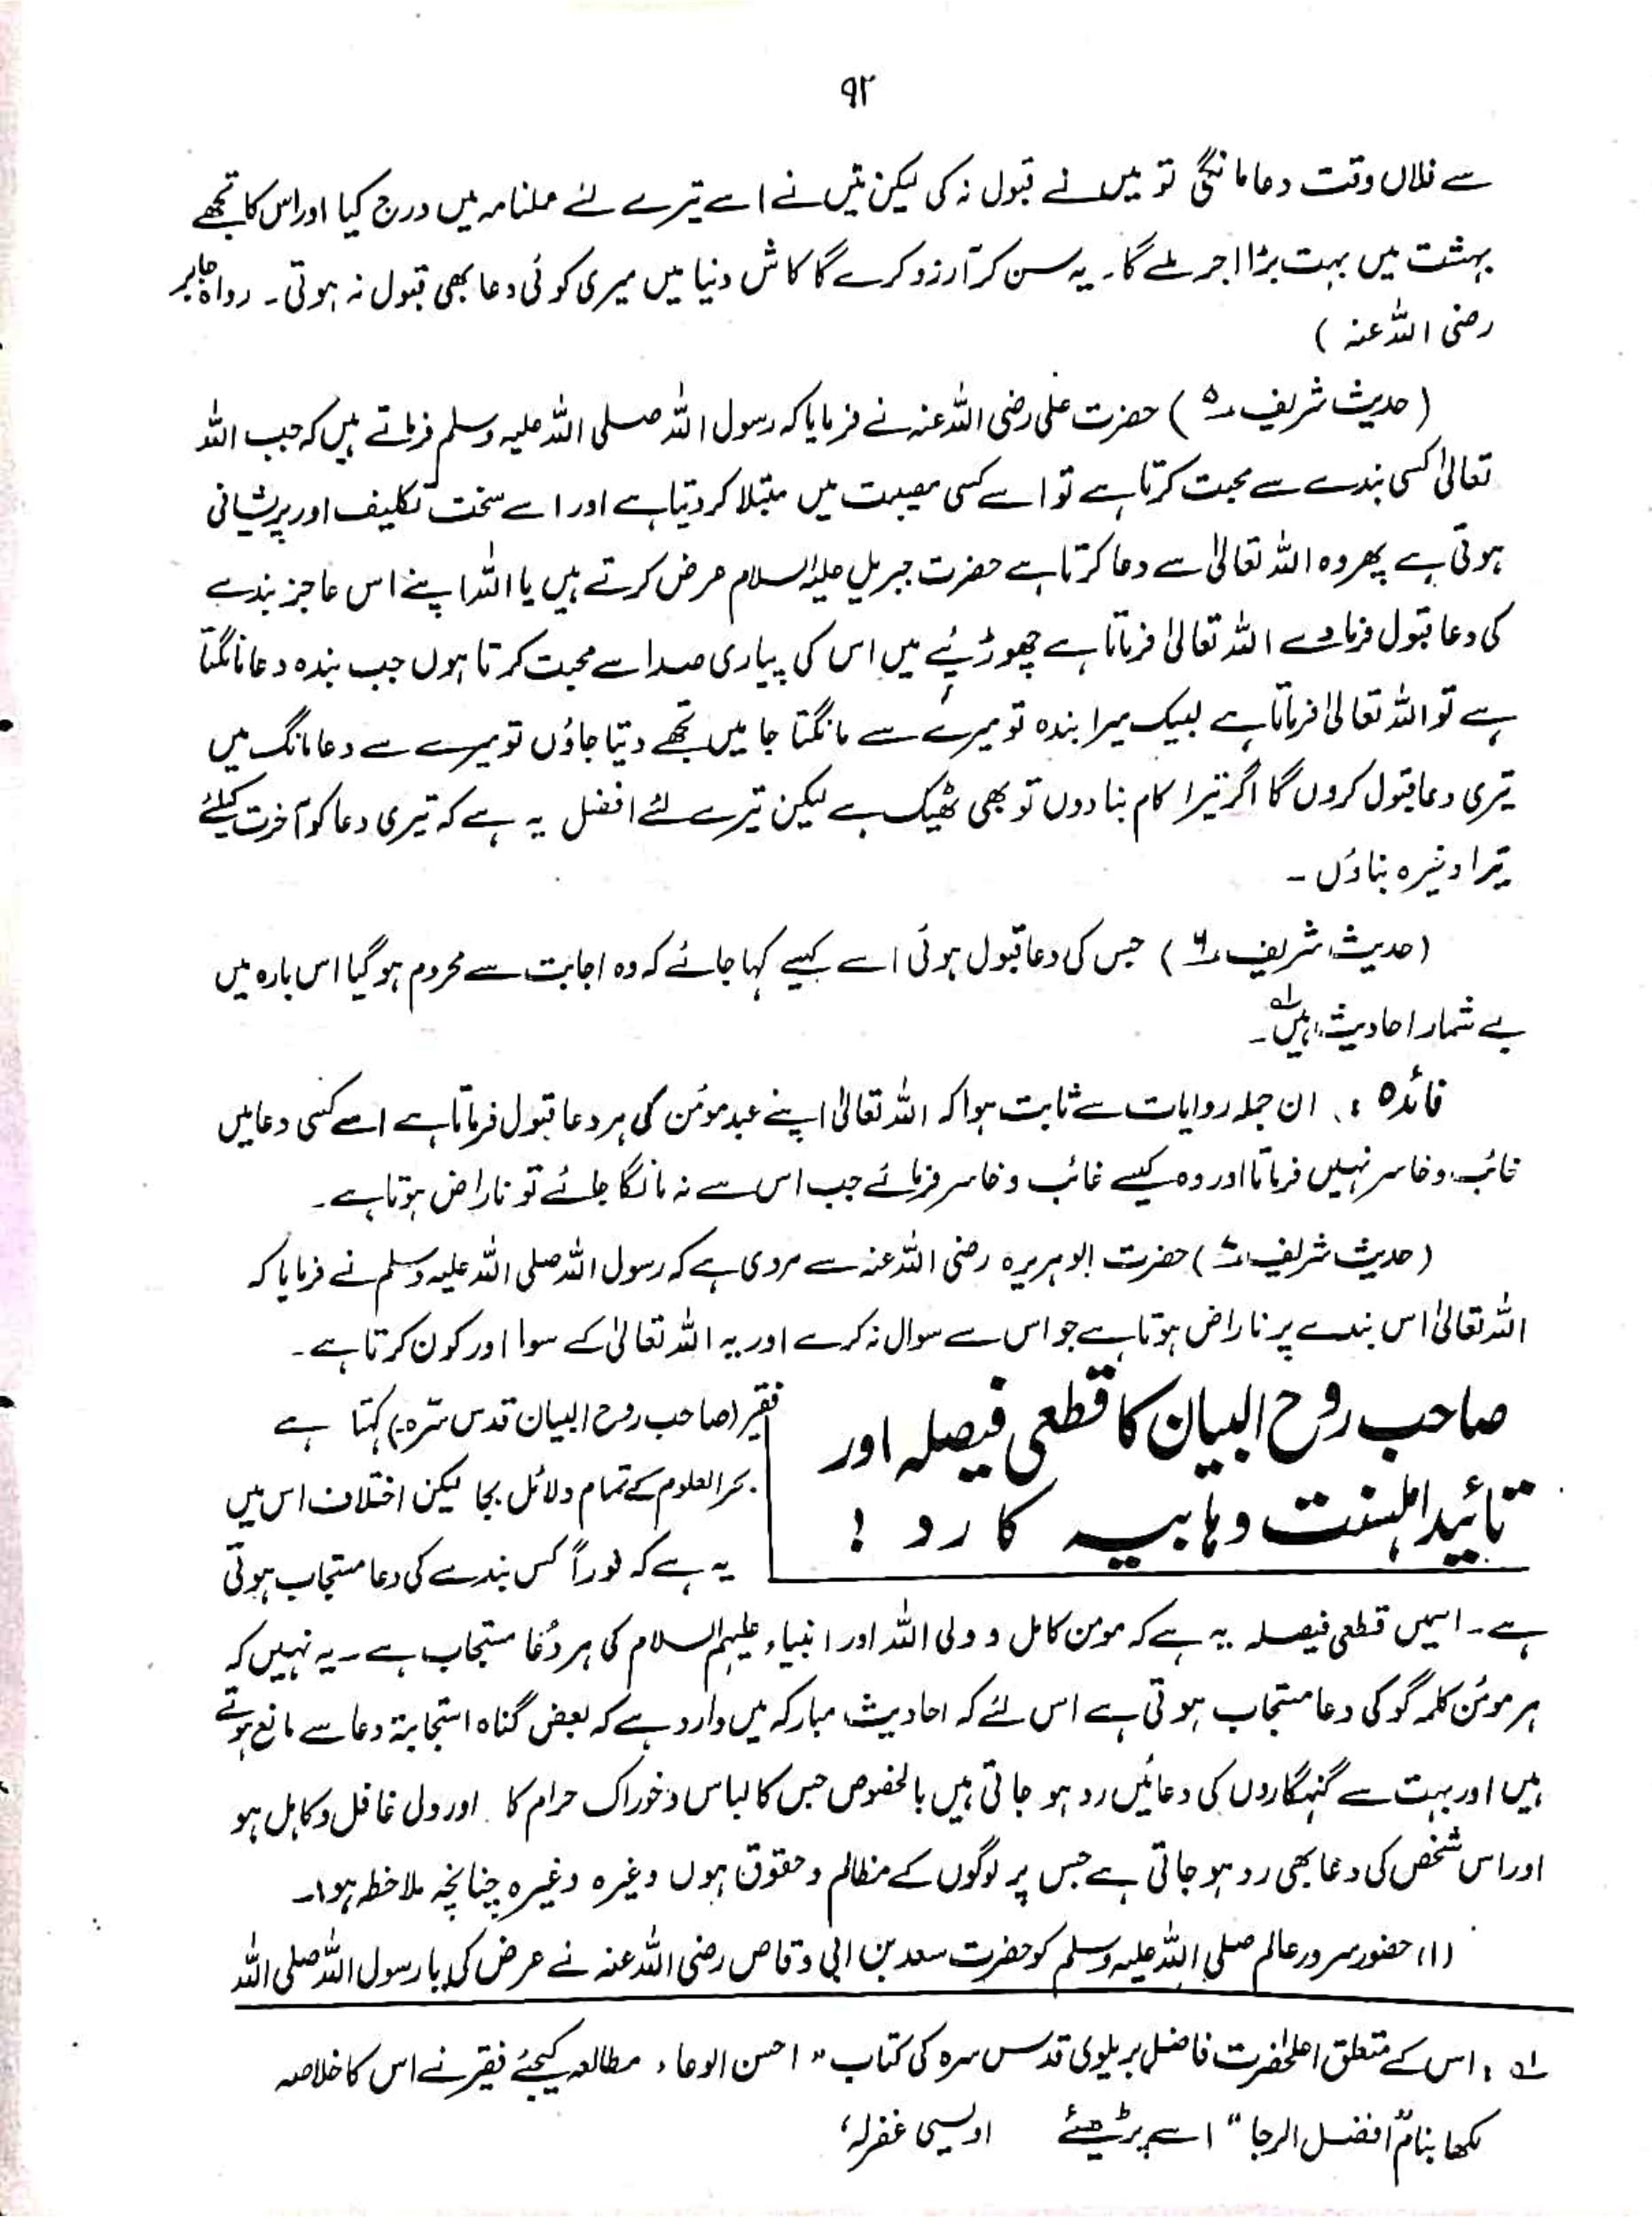 ۹۲
سے فلاں وقت دعا مانگی تو میں نے قبول نہ کی لیکن میں نے اسے تیرے لئے عملنامہ میں درج کیا اور اس کا تجھے
بہشت میں بہت بڑا اجر ملے گا۔ یہ سن کر آرزو کرے گا کاش دنیا میں میری کوئی دعا بھی قبول نہ ہوتی۔ رواہ جابر
رضی اللہ عنہ )
(حدیث شریف ۵ ) حضرت علی رضی اللہ عنہ نے فرمایا کہ رسول اللہ صلی اللہ علیہ وسلم فرماتے ہیں کہ جب اللہ
تعالیٰ کسی بندے سے محبت کرتا ہے تو اسے کسی مصیبت میں مبتلا کر دیتا ہے اور اسے سخت تکلیف اور پریشانی
ہوتی ہے پھر وہ اللہ تعالیٰ سے دعا کرتا ہے حضرت جبریل علیہ السلام عرض کرتے ہیں یا اللہ اپنے اس عاجز بندے
کی دعا قبول فرما دے اللہ تعالیٰ فرماتا ہے چھوڑیئے میں اس کی پیاری صدا سے محبت کرتا ہوں جب بندہ دعا مانگتا
ہے تو اللہ تعالیٰ فرماتا ہے لبیک میرا بندہ تو میرے سے مانگتا جا میں تجھے دیتا جاؤں تو میرے سے دعا مانگ میں
تیری دعا قبول کروں گا اگر تیرا کام بنا دوں تو بھی ٹھیک ہے لیکن تیرے لئے افضل یہ ہے کہ تیری دعا کو آخرت کیلئے
تیرا ذخیرہ بناؤں ۔
(حدیث شریف ۶ ) جس کی دعا قبول ہوئی اسے کیسے کہا جائے کہ وہ اجابت سے محروم ہو گیا اس بارہ میں
بے شمار احادیث ہیں۱؎۔
فائدہ : ان جملہ روایات سے ثابت ہوا کہ اللہ تعالیٰ اپنے عبد مومن کی ہر دعا قبول فرماتا ہے اسے کسی دعا میں
خائب و خاسر نہیں فرماتا اور وہ کیسے خائب و خاسر فرمائے جب اس سے نہ مانگا جائے تو ناراض ہوتا ہے۔
(حدیث شریف ۷ ) حضرت ابو ہریرہ رضی اللہ عنہ سے مروی ہے کہ رسول اللہ صلی اللہ علیہ وسلم نے فرمایا کہ
اللہ تعالیٰ اس بندے پر ناراض ہوتا ہے جو اس سے سوال نہ کرے اور یہ اللہ تعالیٰ کے سوا اور کون کرتا ہے۔
صاحب روح البیان کا قطعی فیصلہ اور
تائید اہلسنت وہابیہ کا رد !
فقیر (صاحب روح البیان قدس سرہ) کہتا ہے
بحر العلوم کے تمام دلائل بجا لیکن اختلاف اس میں
یہ ہے کہ فوراً کس بندے کی دعا مستجاب ہوتی
ہے۔ اسمیں قطعی فیصلہ یہ ہے کہ مومن کامل و ولی اللہ اور انبیاء علیہم السلام کی ہر دُعا مستجاب ہے۔ یہ نہیں کہ
ہر مومن کلمہ گو کی دعا مستجاب ہوتی ہے اس لئے کہ احادیث مبارکہ میں وارد ہے کہ بعض گناہ استجابۃ دعا سے مانع ہوتے
ہیں اور بہت سے گنہگاروں کی دعائیں رد ہو جاتی ہیں بالخصوص جس کا لباس و خوراک حرام کا اور دل غافل و کاہل ہو
اور اس شخص کی دعا بھی رد ہو جاتی ہے جس پر لوگوں کے مظالم و حقوق ہوں وغیرہ وغیرہ چنانچہ ملاحظہ ہو۔
(۱) حضور سرور عالم صلی اللہ علیہ وسلم کو حضرت سعد بن ابی وقاص رضی اللہ عنہ نے عرض کی یا رسول اللہ صلی اللہ
۱؎ : اس کے متعلق اعلحضرت فاضل بریلوی قدس سرہ کی کتاب " احسن الوعاء مطالعہ کیجئے فقیر نے اس کا خلاصہ
لکھا بنام "افضل الرجا" اسے پڑھیئے اویسی غفرلہ،